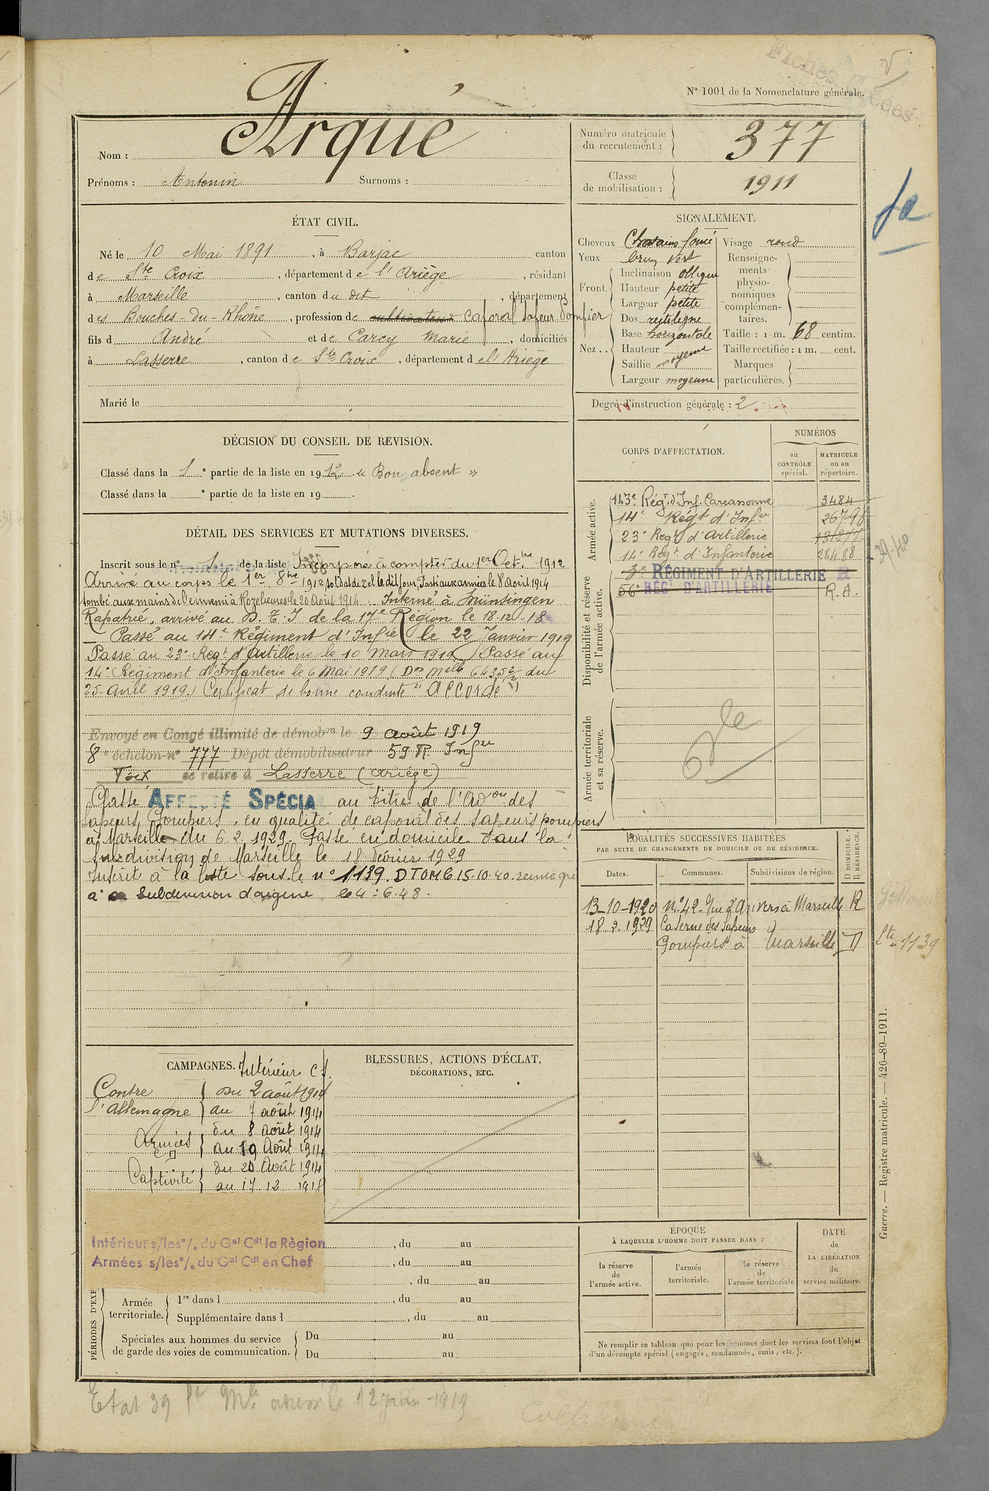 Fiches
N° 1001 de la Nomenclature générale.
Nom : Arqué
Prénoms : Antonin Surnoms :
Numéro matricule du recrutement : 377
Classe de mobilisation : 1911
ÉTAT CIVIL.
Né le 10 Mai 1891, à Barjac canton
de Ste Croix, département de l'Ariège, résidant
à Marseille, canton du dit, département
des Bouches-du-Rhône, profession de cultivateur Caporal Sapeur Pompier
fils d André et de Carcy Marie, domiciliés
à Lasserre, canton de Ste Croix, département de l'Ariège
Marié le
SIGNALEMENT.
Cheveux Chatains foncé
Yeux brun vert
Front. Inclinaison oblique
Hauteur petite
Largeur petite
Nez.. Dos rectiligne
Base horizontale
Hauteur moyenne
Saillie
Largeur moyenne
Visage rond
Renseignements physionomiques complémentaires.
Taille : 1 m. 68 centim.
Taille rectifiée : 1 m. cent.
Marques particulières.
Degré d'instruction générale : 2
DÉCISION DU CONSEIL DE REVISION.
Classé dans la 1e partie de la liste en 1912 « Bon absent »
Classé dans la e partie de la liste en 19 .
DÉTAIL DES SERVICES ET MUTATIONS DIVERSES.
Inscrit sous le n° de la liste Incorporé à compter du 1er Octbre 1912
Arrivé au corps le 1er 8bre 1912 et Soldat 2e cl le dit jour, Parti aux armées le 8 Août 1914
tombé aux mains de l'ennemi à Rozelieures le 20 Août 1914. Interné à Münsingen
Rapatrié, arrivé au D. T. I de la 17e Région le 18-12-18
Passé au 14e Régiment d'Infie le 22 Janvier 1919
Passé au 23e Regt d'Artillerie le 10 Mars 1919 Passé au
14e Régiment d'Infanterie le 6 Mai 1919 (Don Melle 6435 2/2 du
25 Avril 1919.) Certificat de bonne conduite "Accordé"
Envoyé en Congé illimité de démobon le 9 août 1919
8e échelon n° 777 Dépôt démobilisateur 59 R. Infrie
Foix se retire à Lasserre (Ariège)
Classé AFFECTÉ SPÉCIAL au titre de l'Adon des
Sapeurs Pompiers, en qualité de caporal des sapeurs pompiers
à Marseille du 6.2.1929. Passé en domicile dans la
Subdivision de Marseille le 18 Février 1929
Inscrit à la liste sous le n° 1139. DTOMG.15.10.40.
à sa Subdivision d'origine le 4:6.48.
CORPS D'AFFECTATION.
NUMÉROS
au CONTRÔLE spécial.
MATRICULE ou au répertoire.
Armée active.
143e Régt d'Inf. Carcassonne 3484
14e Régt d'Infie
23e Regt d'Artillerie
14e Regt d'Infanterie 28488
Disponibilité et réserve de l'armée active.
3e RÉGIMENT D'ARTILLERIE
56e RÉG. D'ARTILLERIE R.A.
Armée territoriale et sa réserve.
LOCALITÉS SUCCESSIVES HABITÉES
PAR SUITE DE CHANGEMENTS DE DOMICILE OU DE RÉSIDENCE.
D DOMICILE. R RÉSIDENCE.
Dates. Communes. Subdivisions de région.
13-10-1920 n° 42 Rue d'Anvers à Marseille R
18.2.1929 Caserne des Sapeurs
Pompiers à Marseille D
lte n° 1139
CAMPAGNES. Intérieur C.S.
Contre l'Allemagne du 2 août 1914
au 7 août 1914
Armées du 8 Août 1914
au 19 Août 1914
Captivité du 20 Août 1914
au 17.12.1918
BLESSURES, ACTIONS D'ÉCLAT,
DÉCORATIONS, ETC.
Intérieur s/les °/. du Gal Cdt la Région
Armées s/les °/. du Gal Cdt en Chef
, du au
, du au
, du au
PÉRIODES D'EXE
Armée territoriale. 1re dans l , du au
Supplémentaire dans l , du au
Spéciales aux hommes du service de garde des voies de communication. Du au
Du au
ÉPOQUE
À LAQUELLE L'HOMME DOIT PASSER DANS :
la réserve de l'armée active.
l'armée territoriale.
la réserve de l'armée territoriale
DATE de LA LIBÉRATION du service militaire.
Ne remplir ce tableau que pour les hommes dont les services font l'objet
d'un décompte spécial (engagés, condamnés, omis, etc.).
Guerre. — Registre matricule. — 426-89-1911.
Etat 39 le 12 juin 1919